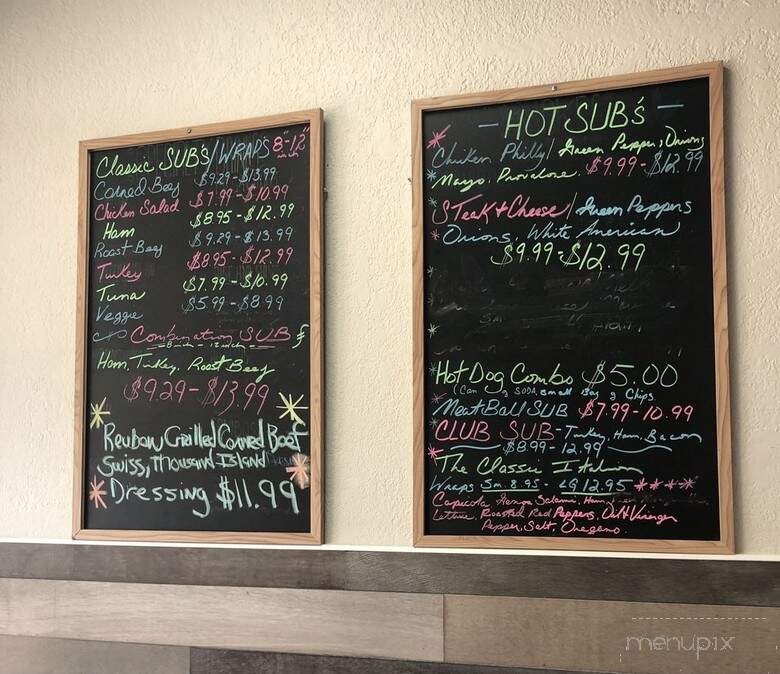 Classic SUB's/WRAPS 8"-12"
inch
Corned Beef $9.29-$13.99
Chicken Salad $7.99-$10.99
Ham $8.95-$12.99
Roast Beef $9.29-$13.99
Turkey $8.95-$12.99
Tuna $7.99-$10.99
Veggie $5.99-$8.99
Combination SUB
8 inch - 12 inch
Ham, Turkey, Roast Beef
$9.29-$13.99
Reuben Grilled Corned Beef
Swiss, Thousand Island
Dressing $11.99
- HOT SUB's -
Chicken Philly/Green Pepper, Onions
Mayo, Provolone. $9.99-$12.99
STeak + Cheese/Green Peppers
Onions, White American
$9.99-$12.99
Hot Dog Combo $5.00
(Can of SODA, small Bag of Chips
MeatBall SUB $7.99-10.99
CLUB SUB-Turkey, Ham, Bacon
$8.99-12.99
The Classic Italian
Wraps Sm. 8.95 - LG 12.95 ****
Capicola, Genoa Salami, Ham,
Lettuce, Roasted Red Peppers, Oil + Vinegar
Pepper, Salt, Oregano.
menupix